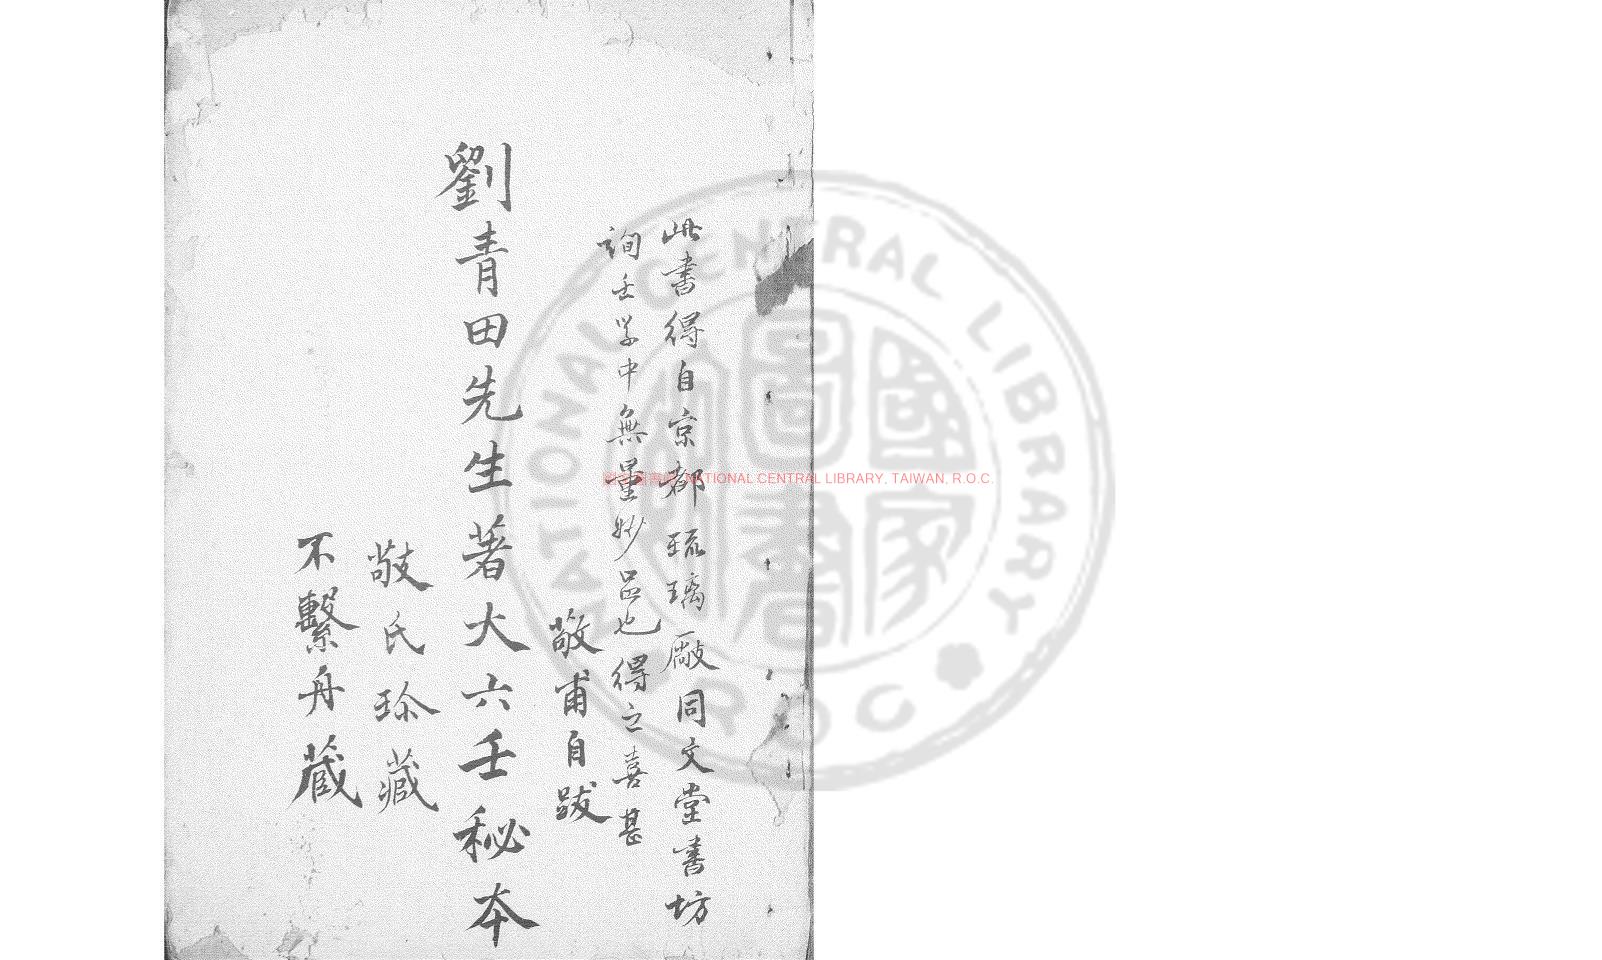 此書得自京都琉璃厰同文堂書坊
詢壬学中無量妙品也得之喜甚
敬甫自跋
劉青田先生著大六壬秘本
敬氏珍藏
不繫舟藏
國家圖書館 NATIONAL CENTRAL LIBRARY, TAIWAN, R.O.C.
NATIONAL CENTRAL LIBRARY
ROC
國家圖書館